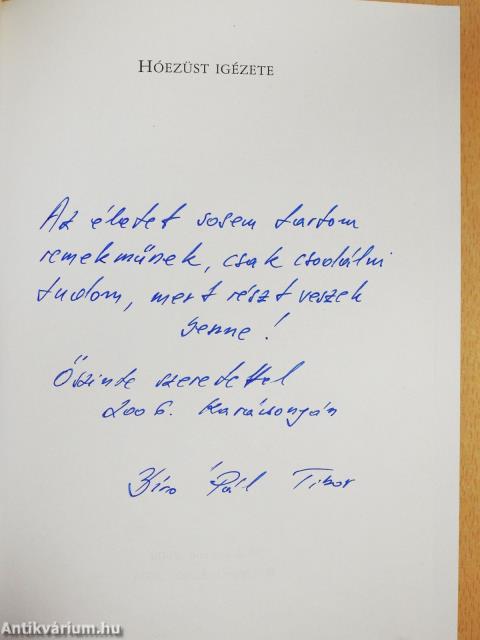 HÓEZÜST IGÉZETE
Az életet sosem tartom
remekműnek, csak csodálni
tudom, mert részt veszek
benne!
Őszinte szeretettel
2006. Karácsonyán
Bíró Pál Tibor
Antikvárium.hu